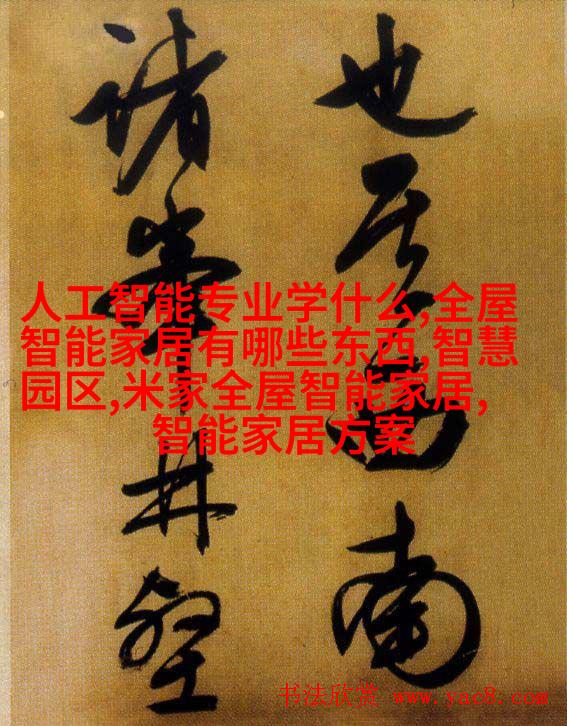 也其西南
諸峯林壑
人工智能专业学什么,全屋
智能家居有哪些东西,智慧
园区,米家全屋智能家居,
智能家居方案
书法欣赏 www.yac8.com